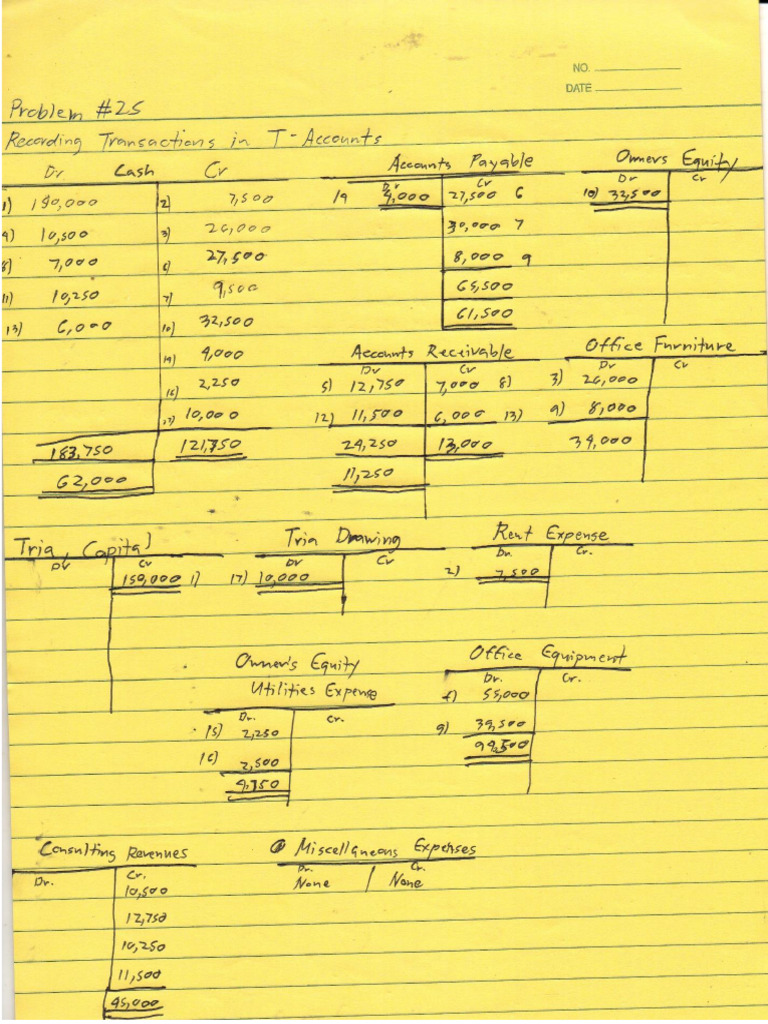 NO.
DATE
Problem #25
Recording Transactions in T-Accounts
Dr Cash Cr
1) 150,000 2) 7,500
4) 10,500 3) 26,000
8) 7,000 6) 27,500
11) 10,250 7) 9,500
13) 6,000 10) 32,500
14) 4,000
15) 2,250
17) 10,000
183,750 121,750
62,000
Accounts Payable
Dr Cr
14 4,000 27,500 6
30,000 7
8,000 9
65,500
61,500
Owners Equity
Dr Cr
10) 32,500
Accounts Receivable
Dr Cr
5) 12,750 7,000 8)
12) 11,500 6,000 13)
24,250 13,000
11,250
Office Furniture
Dr Cr
3) 26,000
9) 8,000
34,000
Tria, Capital
Dr Cr
150,000 1)
Tria Drawing
Dr Cr
17) 10,000
Rent Expense
Dr. Cr.
2) 7,500
Owner's Equity
Utilities Expense
Dr. Cr.
15) 2,250
16) 2,500
4,750
Office Equipment
Dr. Cr.
55,000
9) 39,500
94,500
Consulting Revenues
Dr. Cr.
10,500
12,750
10,250
11,500
45,000
Miscellaneous Expenses
Dr. Cr.
None / None